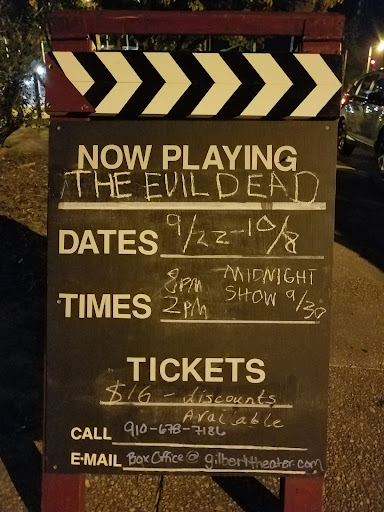 NOW PLAYING
THE EVIL DEAD
DATES 9/22-10/8
TIMES 8PM MIDNIGHT
2PM SHOW 9/30
TICKETS
$16 - discounts
Available
CALL 910-678-7186
E-MAIL BoxOffice@gilberttheater.com